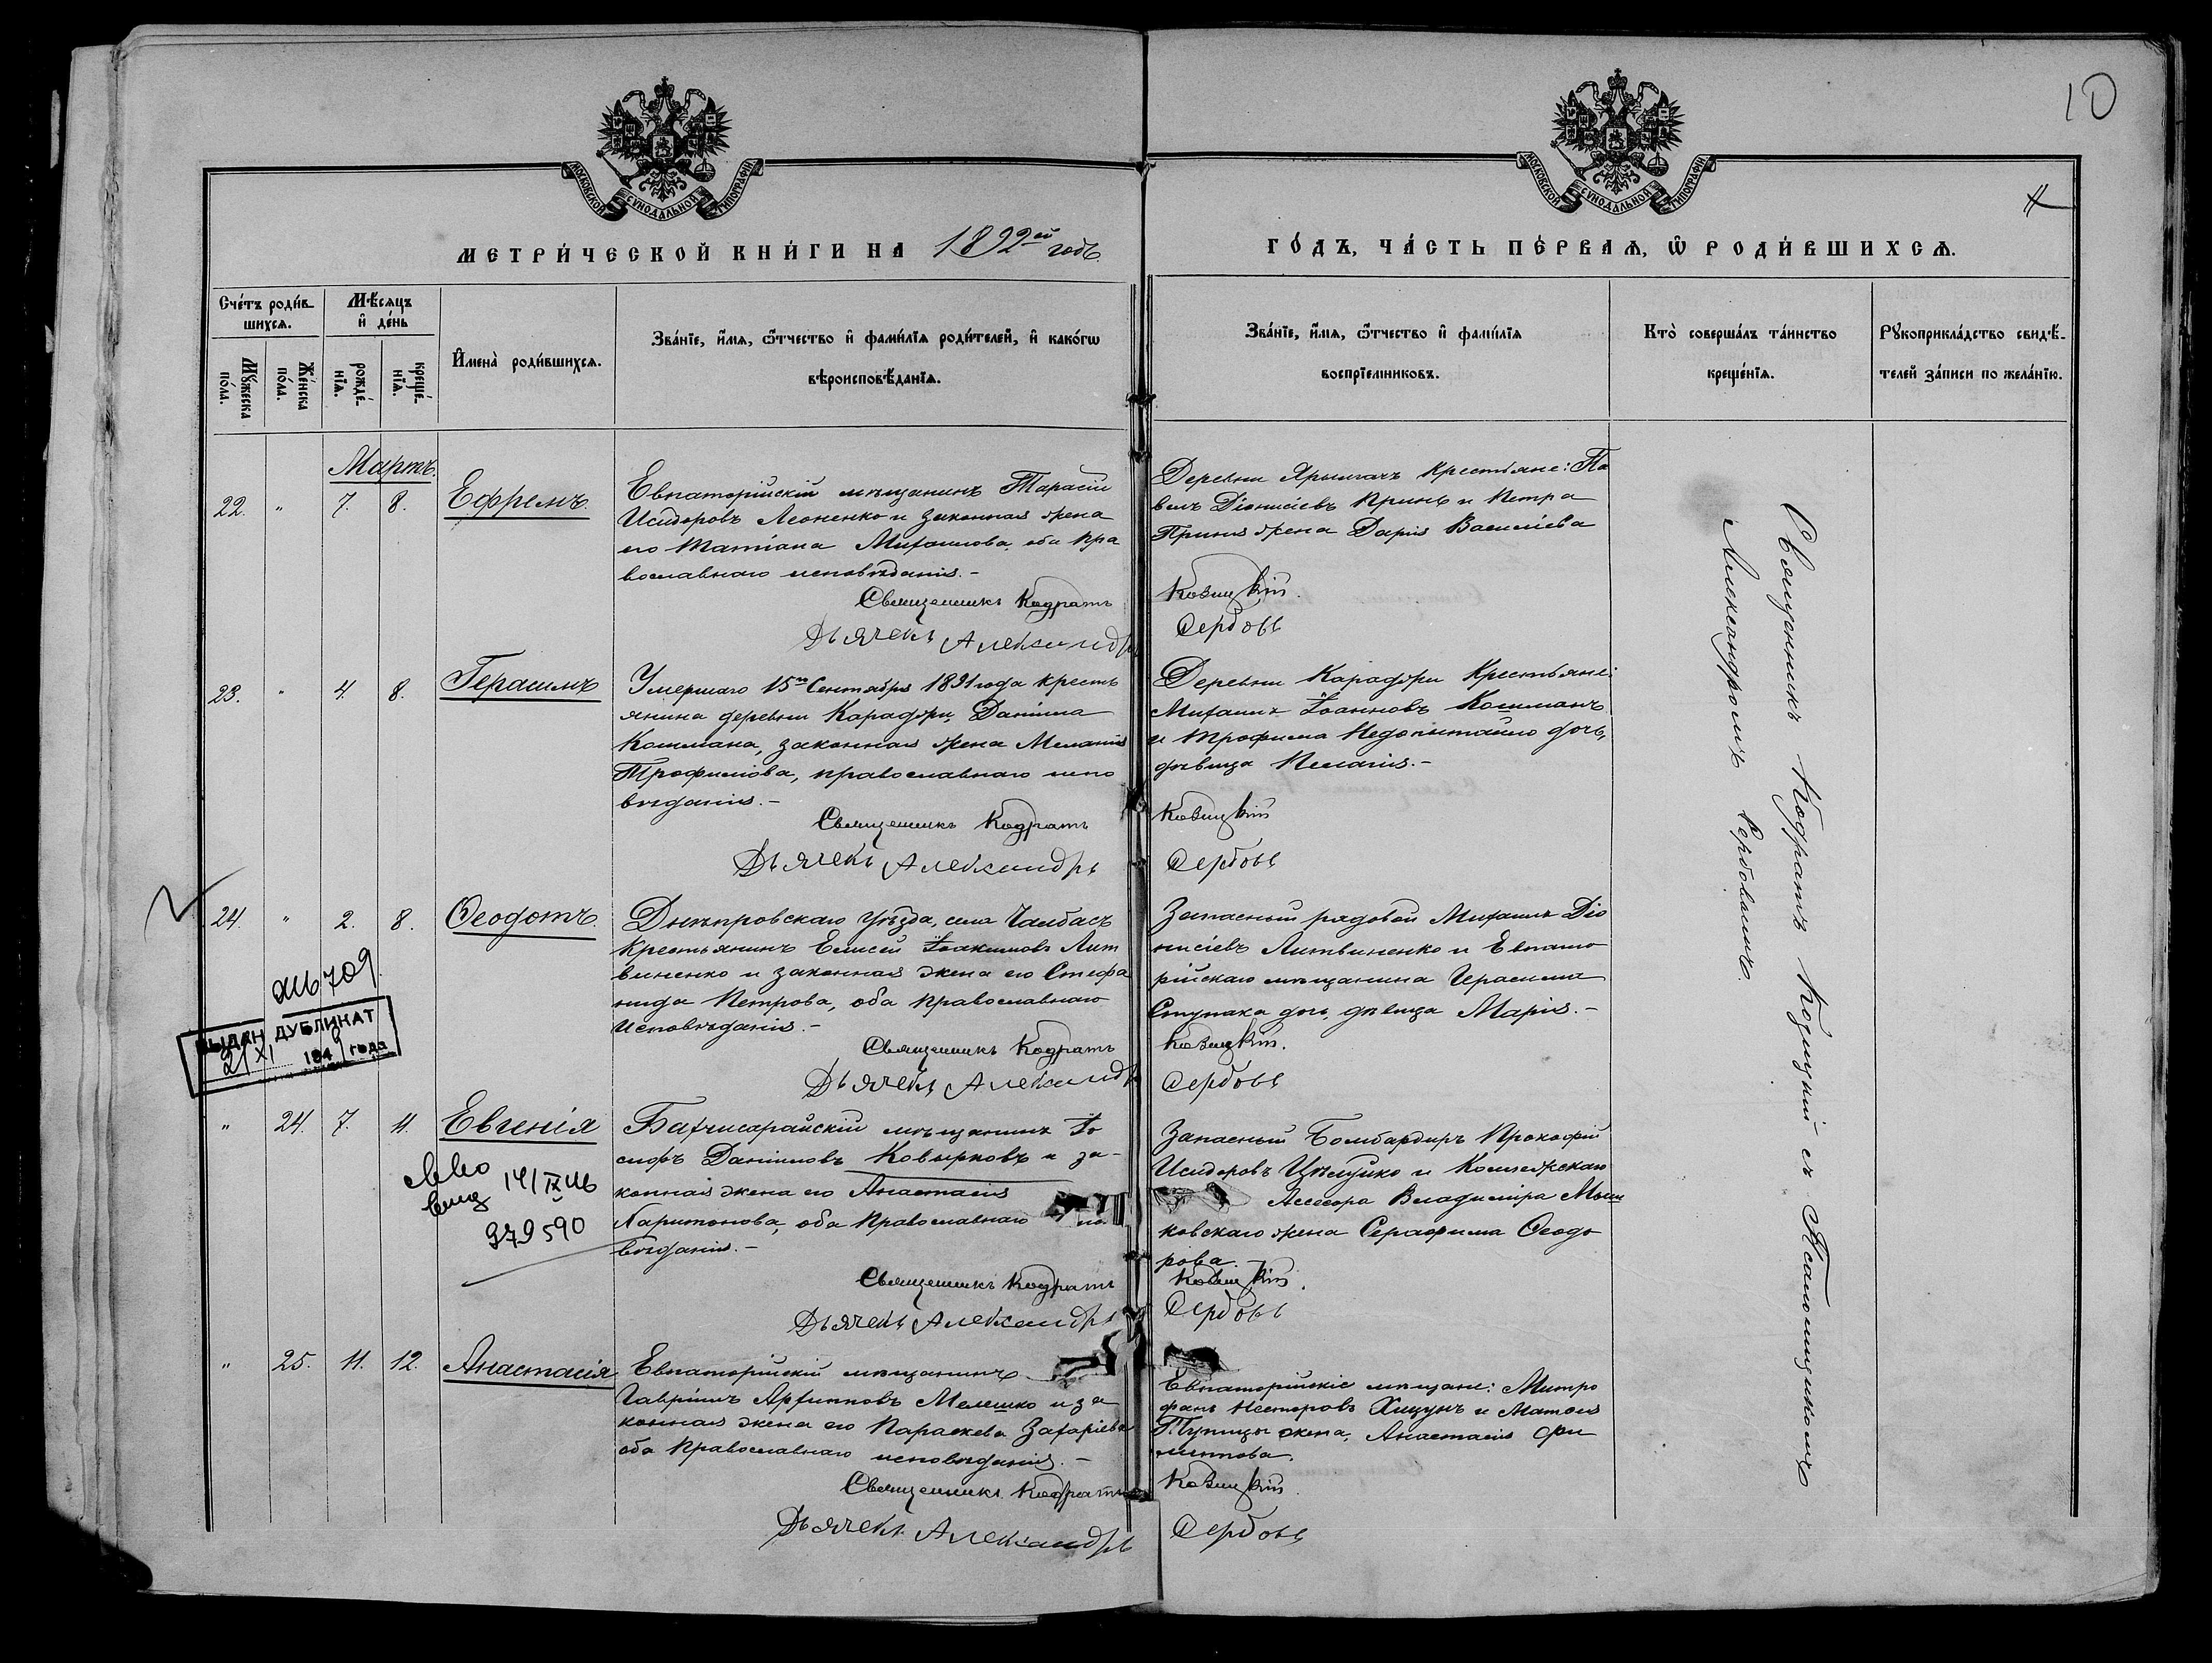 10
МОСКОВСКОЙ СѴНОДАЛЬНОЙ ТИПОГРАФІИ
МОСКОВСКОЙ СѴНОДАЛЬНОЙ ТИПОГРАФІИ
МЕТРИ́ЧЕСКОЙ КНИ́ГИ НА 1892ой годъ.
ГО́ДЪ, ЧА́СТЬ ПЕ́РВАѦ, Ѿ РОДИ́ВШИХСѦ.
Сче́тъ роди́в-
шихсѧ.
Мꙋ́жеска
по́ла.
Же́нска
по́ла.
Мѣ́сѧцъ
и҆ де́нь
рожде́-
нїѧ.
креще́-
нїѧ.
И҆мена̀ роди́вшихсѧ.
Зва́нїе, и҆́мѧ, ѻ҆́тчество и҆ фамѝлїѧ роди́телей, и҆ како́гѡ
вѣроисповѣ́данїѧ.
Зва́нїе, и҆́мѧ, ѻ҆́тчество и҆ фамѝлїѧ
воспрїе́мниковъ.
Кто̀ соверша́лъ та́инство
креще́нїѧ.
Рꙋкоприкла́дство свидѣ́-
телей за́писи по жела́нїю.
Мартъ.
22. " 7. 8. Ефремъ.
Евпаторійскій мѣщанинъ Тарасій
Исидоровъ Леоненко и законная жена
его Татіана Михаилова, оба пра
вославнаго исповѣданія.-
Священникъ Кодратъ
Дьячекъ Александръ
Деревни Ярылгачъ крестьяне: Па
велъ Діонисіевъ Принь и Петра
Приня жена Дарія Василіева
Козицкій.
Сербовъ
23. " 4. 8. Герасимъ
Умершаго 15го Сентября 1891 года кресть
янина деревни Караджи, Даніила
Кошмана, законная жена Меланія
Трофимова, православнаго испо
вѣданія.-
Священникъ Кодратъ
Дьячекъ Александръ
Деревни Караджи Крестьяне:
Михаилъ Іоанновъ Кошманъ
и Трофима Недопытайло дочь,
дѣвица Пелагія.-
Козицкій
Сербовъ
24. " 2. 8. Ѳеодотъ.
Днѣпровскаго уѣзда, села Чалбасъ
крестьянинъ Елисей Іоакимовъ Лит
виненко и законная жена его Стефа
нида Петрова, оба православнаго
исповѣданія.-
Священникъ Кодратъ
Дьячекъ Александръ
Запасный рядовой Михаилъ Діо
нисіевъ Литвиненко и Евпато
рійскаго мѣщанина Герасима
Ступака дочь, дѣвица Марія.-
Козицкій.
Сербовъ
709
ВЫДАН ДУБЛИКАТ
21 XI 194 года
" 24. 7. 11. Евгенія
Бахчисарайскій мѣщанинъ Іо
сифъ Даніиловъ Ковырковъ и за-
конная жена его Анастасія
Харитонова, оба Православнаго испо
вѣданія.-
Священникъ Кодратъ
Дьячекъ Александръ
Запасный Бомбардиръ Прокофій
Исидоровъ Цѣлуйко и Коллежскаго
Ассесора Владиміра
ковскаго жена Серафима Ѳеодо
рова.
Козицкій.
Сербовъ
141
979590
" 25. 11. 12. Анастасія
Евпаторійскій мѣщанинъ
Гавріилъ Архиповъ Мелешко и за
конная жена его Параскева Захаріева
оба Православнаго исповѣданія.-
Священникъ Кодратъ
Дьячекъ Александръ
Евпаторійскіе мѣщане: Митро
фанъ Несторовъ Хицунъ и Матѳія
Тупицы жена, Анастасія Фи
липпова.
Козицкій.
Сербовъ
Священникъ Кодратъ Козицкій съ Псаломщикомъ
Александромъ Сербовымъ.